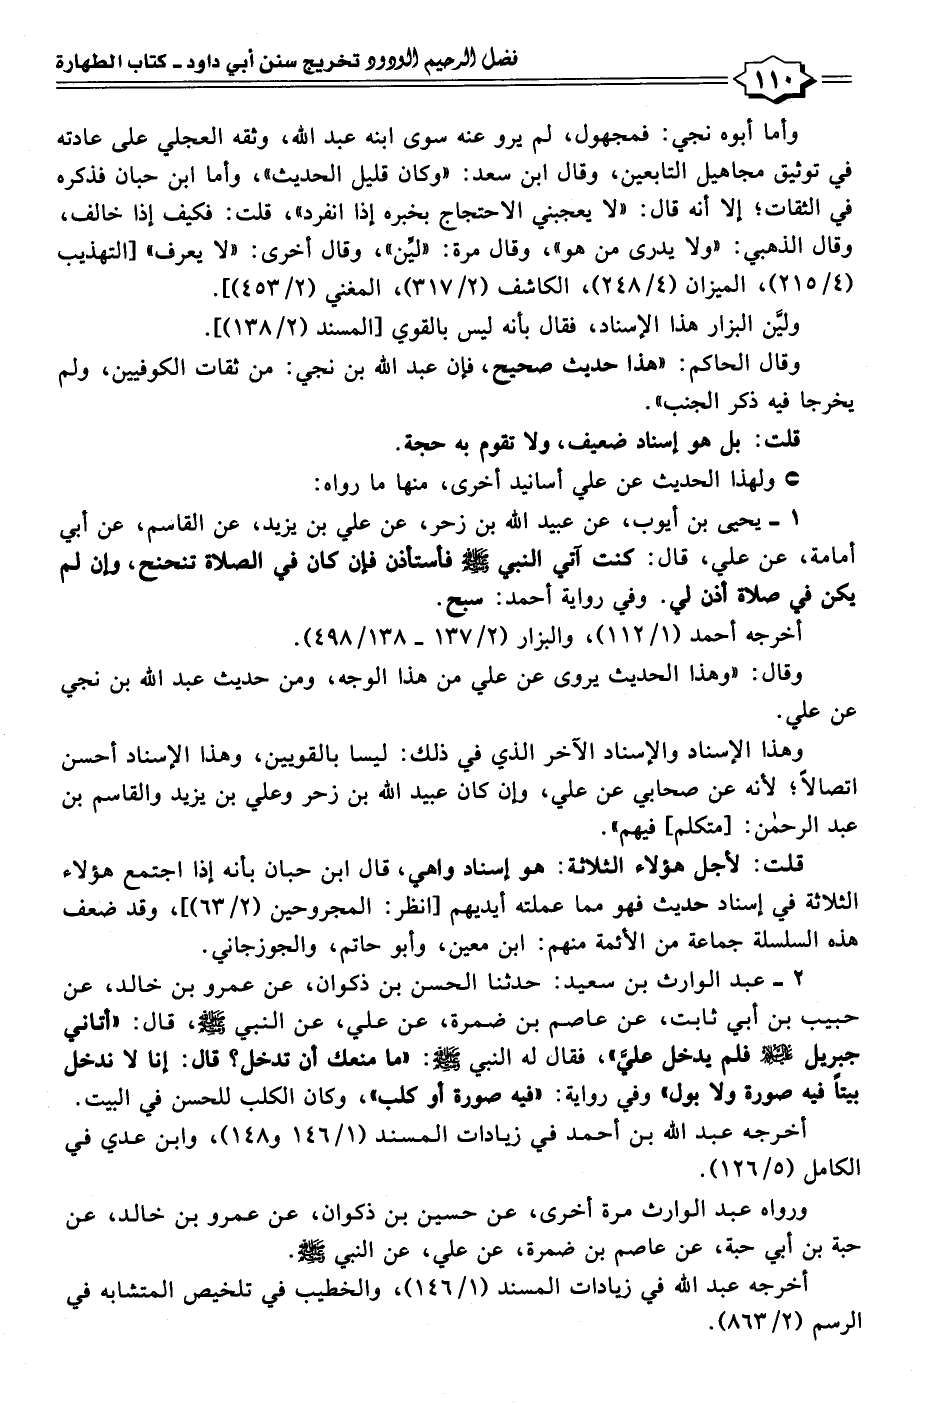 فضل الرحيم الودود تخريج سنن أبي داود - كتاب الطهارة
١١٠
وأما أبوه نجي: فمجهول، لم يرو عنه سوى ابنه عبد الله، وثقه العجلي على عادته
في توثيق مجاهيل التابعين، وقال ابن سعد: «وكان قليل الحديث»، وأما ابن حبان فذكره
في الثقات؛ إلا أنه قال: «لا يعجبني الاحتجاج بخبره إذا انفرد»، قلت: فكيف إذا خالف،
وقال الذهبي: «ولا يدرى من هو»، وقال مرة: «ليِّن»، وقال أخرى: «لا يعرف» [التهذيب
(٢١٥/٤)، الميزان (٢٤٨/٤)، الكاشف (٣١٧/٢)، المغني (٤٥٣/٢)].
وليَّن البزار هذا الإسناد، فقال بأنه ليس بالقوي [المسند (١٣٨/٢)].
وقال الحاكم: «هذا حديث صحيح، فإن عبد الله بن نجي: من ثقات الكوفيين، ولم
يخرجا فيه ذكر الجنب».
قلت: بل هو إسناد ضعيف، ولا تقوم به حجة.
ولهذا الحديث عن علي أسانيد أخرى، منها ما رواه:
١ - يحيى بن أيوب، عن عبيد الله بن زحر، عن علي بن يزيد، عن القاسم، عن أبي
أمامة، عن علي، قال: كنت آتي النبي ﷺ فأستأذن فإن كان في الصلاة تنحنح، وإن لم
يكن في صلاة أذن لي. وفي رواية أحمد: سبح.
أخرجه أحمد (١١٢/١)، والبزار (١٣٧/٢ - ٤٩٨/١٣٨).
وقال: «وهذا الحديث يروى عن علي من هذا الوجه، ومن حديث عبد الله بن نجي
عن علي.
وهذا الإسناد والإسناد الآخر الذي في ذلك: ليسا بالقويين، وهذا الإسناد أحسن
اتصالاً؛ لأنه عن صحابي عن علي، وإن كان عبيد الله بن زحر وعلي بن يزيد والقاسم بن
عبد الرحمٰن: [متكلم] فيهم».
قلت: لأجل هؤلاء الثلاثة: هو إسناد واهي، قال ابن حبان بأنه إذا اجتمع هؤلاء
الثلاثة في إسناد حديث فهو مما عملته أيديهم [انظر: المجروحين (٦٣/٢)]، وقد ضعف
هذه السلسلة جماعة من الأئمة منهم: ابن معين، وأبو حاتم، والجوزجاني.
٢ - عبد الوارث بن سعيد: حدثنا الحسن بن ذكوان، عن عمرو بن خالد، عن
حبيب بن أبي ثابت، عن عاصم بن ضمرة، عن علي، عن النبي ﷺ، قال: «أتاني
جبريل ﵇ فلم يدخل عليَّ»، فقال له النبي ﷺ: «ما منعك أن تدخل؟ قال: إنا لا ندخل
بيتاً فيه صورة ولا بول» وفي رواية: «فيه صورة أو كلب»، وكان الكلب للحسن في البيت.
أخرجه عبد الله بن أحمد في زيادات المسند (١٤٦/١ و١٤٨)، وابن عدي في
الكامل (١٢٦/٥).
ورواه عبد الوارث مرة أخرى، عن حسين بن ذكوان، عن عمرو بن خالد، عن
حبة بن أبي حبة، عن عاصم بن ضمرة، عن علي، عن النبي ﷺ.
أخرجه عبد الله في زيادات المسند (١٤٦/١)، والخطيب في تلخيص المتشابه في
الرسم (٨٦٣/٢).